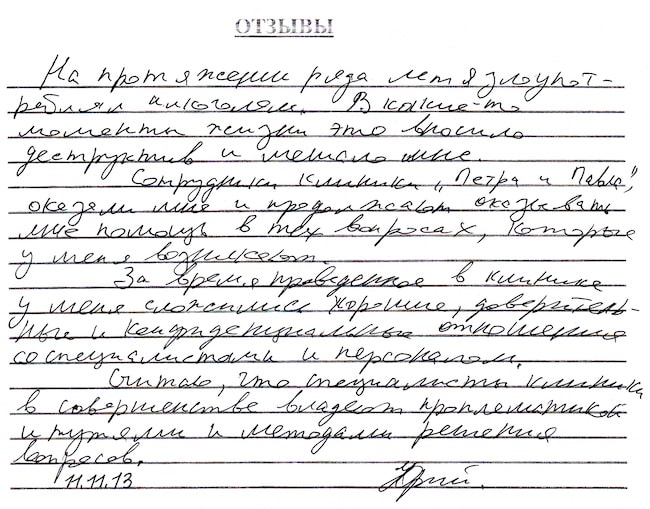 ОТЗЫВЫ
На протяжении ряда лет я злоупот-
реблял алкоголем. В какие-то
моменты жизни это вносило
деструктив и мешало мне.
Сотрудники клиники „Петра и Павла"
оказали мне и продолжают оказывать
мне помощь в тех вопросах, которые
у меня возникают.
За время проведенное в клинике
у меня сложились хорошие, доверитель-
ные и конфиденциальные отношения
со специалистами и персоналом.
Считаю, что специалисты клиники
в совершенстве владеют проплематикой
и путями и методами решения
вопросов.
11.11.13 Юрий.